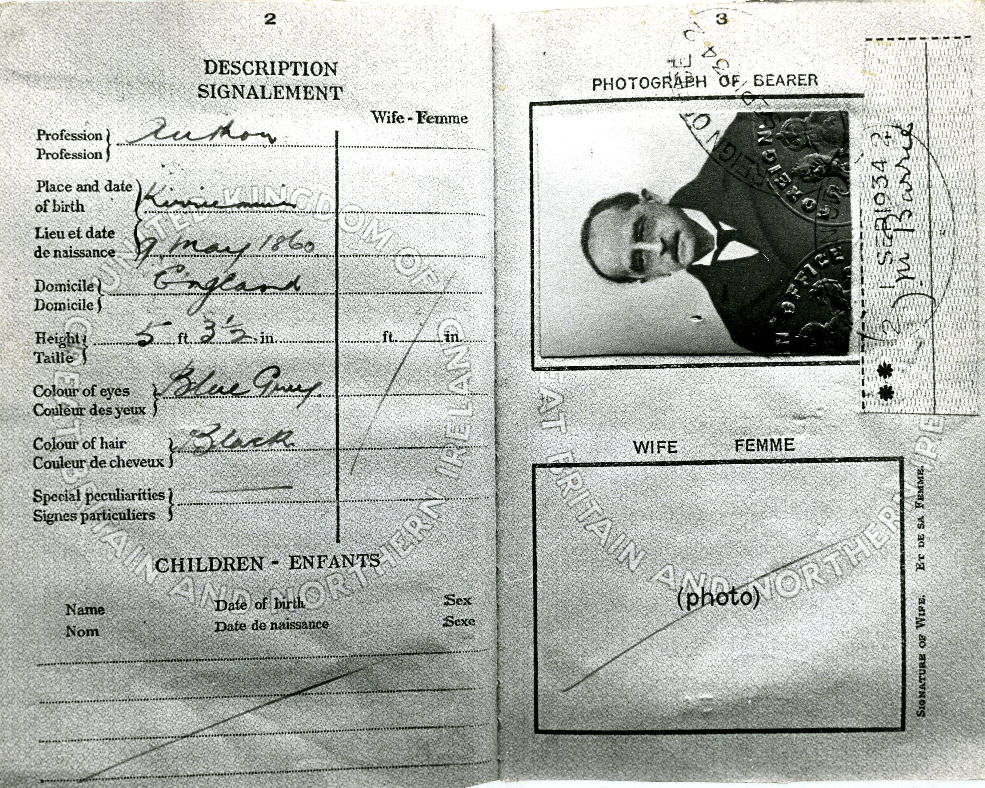 2
DESCRIPTION
SIGNALEMENT
Wife - Femme
Profession Author
Profession
Place and date
of birth Kirriemuir
Lieu et date
de naissance 9 May 1860
Domicile England
Domicile
Height 5 ft. 3½ in. ft. in.
Taille
Colour of eyes Blue Grey
Couleur des yeux
Colour of hair Black
Couleur de cheveux
Special peculiarities
Signes particuliers
CHILDREN - ENFANTS
Name Date of birth Sex
Nom Date de naissance Sexe
UNITED KINGDOM OF GREAT BRITAIN AND NORTHERN IRELAND
3
PHOTOGRAPH OF BEARER
FOREIGN OFFICE
1 SEP 1934
J M Barrie
**
WIFE FEMME
(photo)
SIGNATURE OF WIFE. ET DE SA FEMME.
GREAT BRITAIN AND NORTHERN IRE